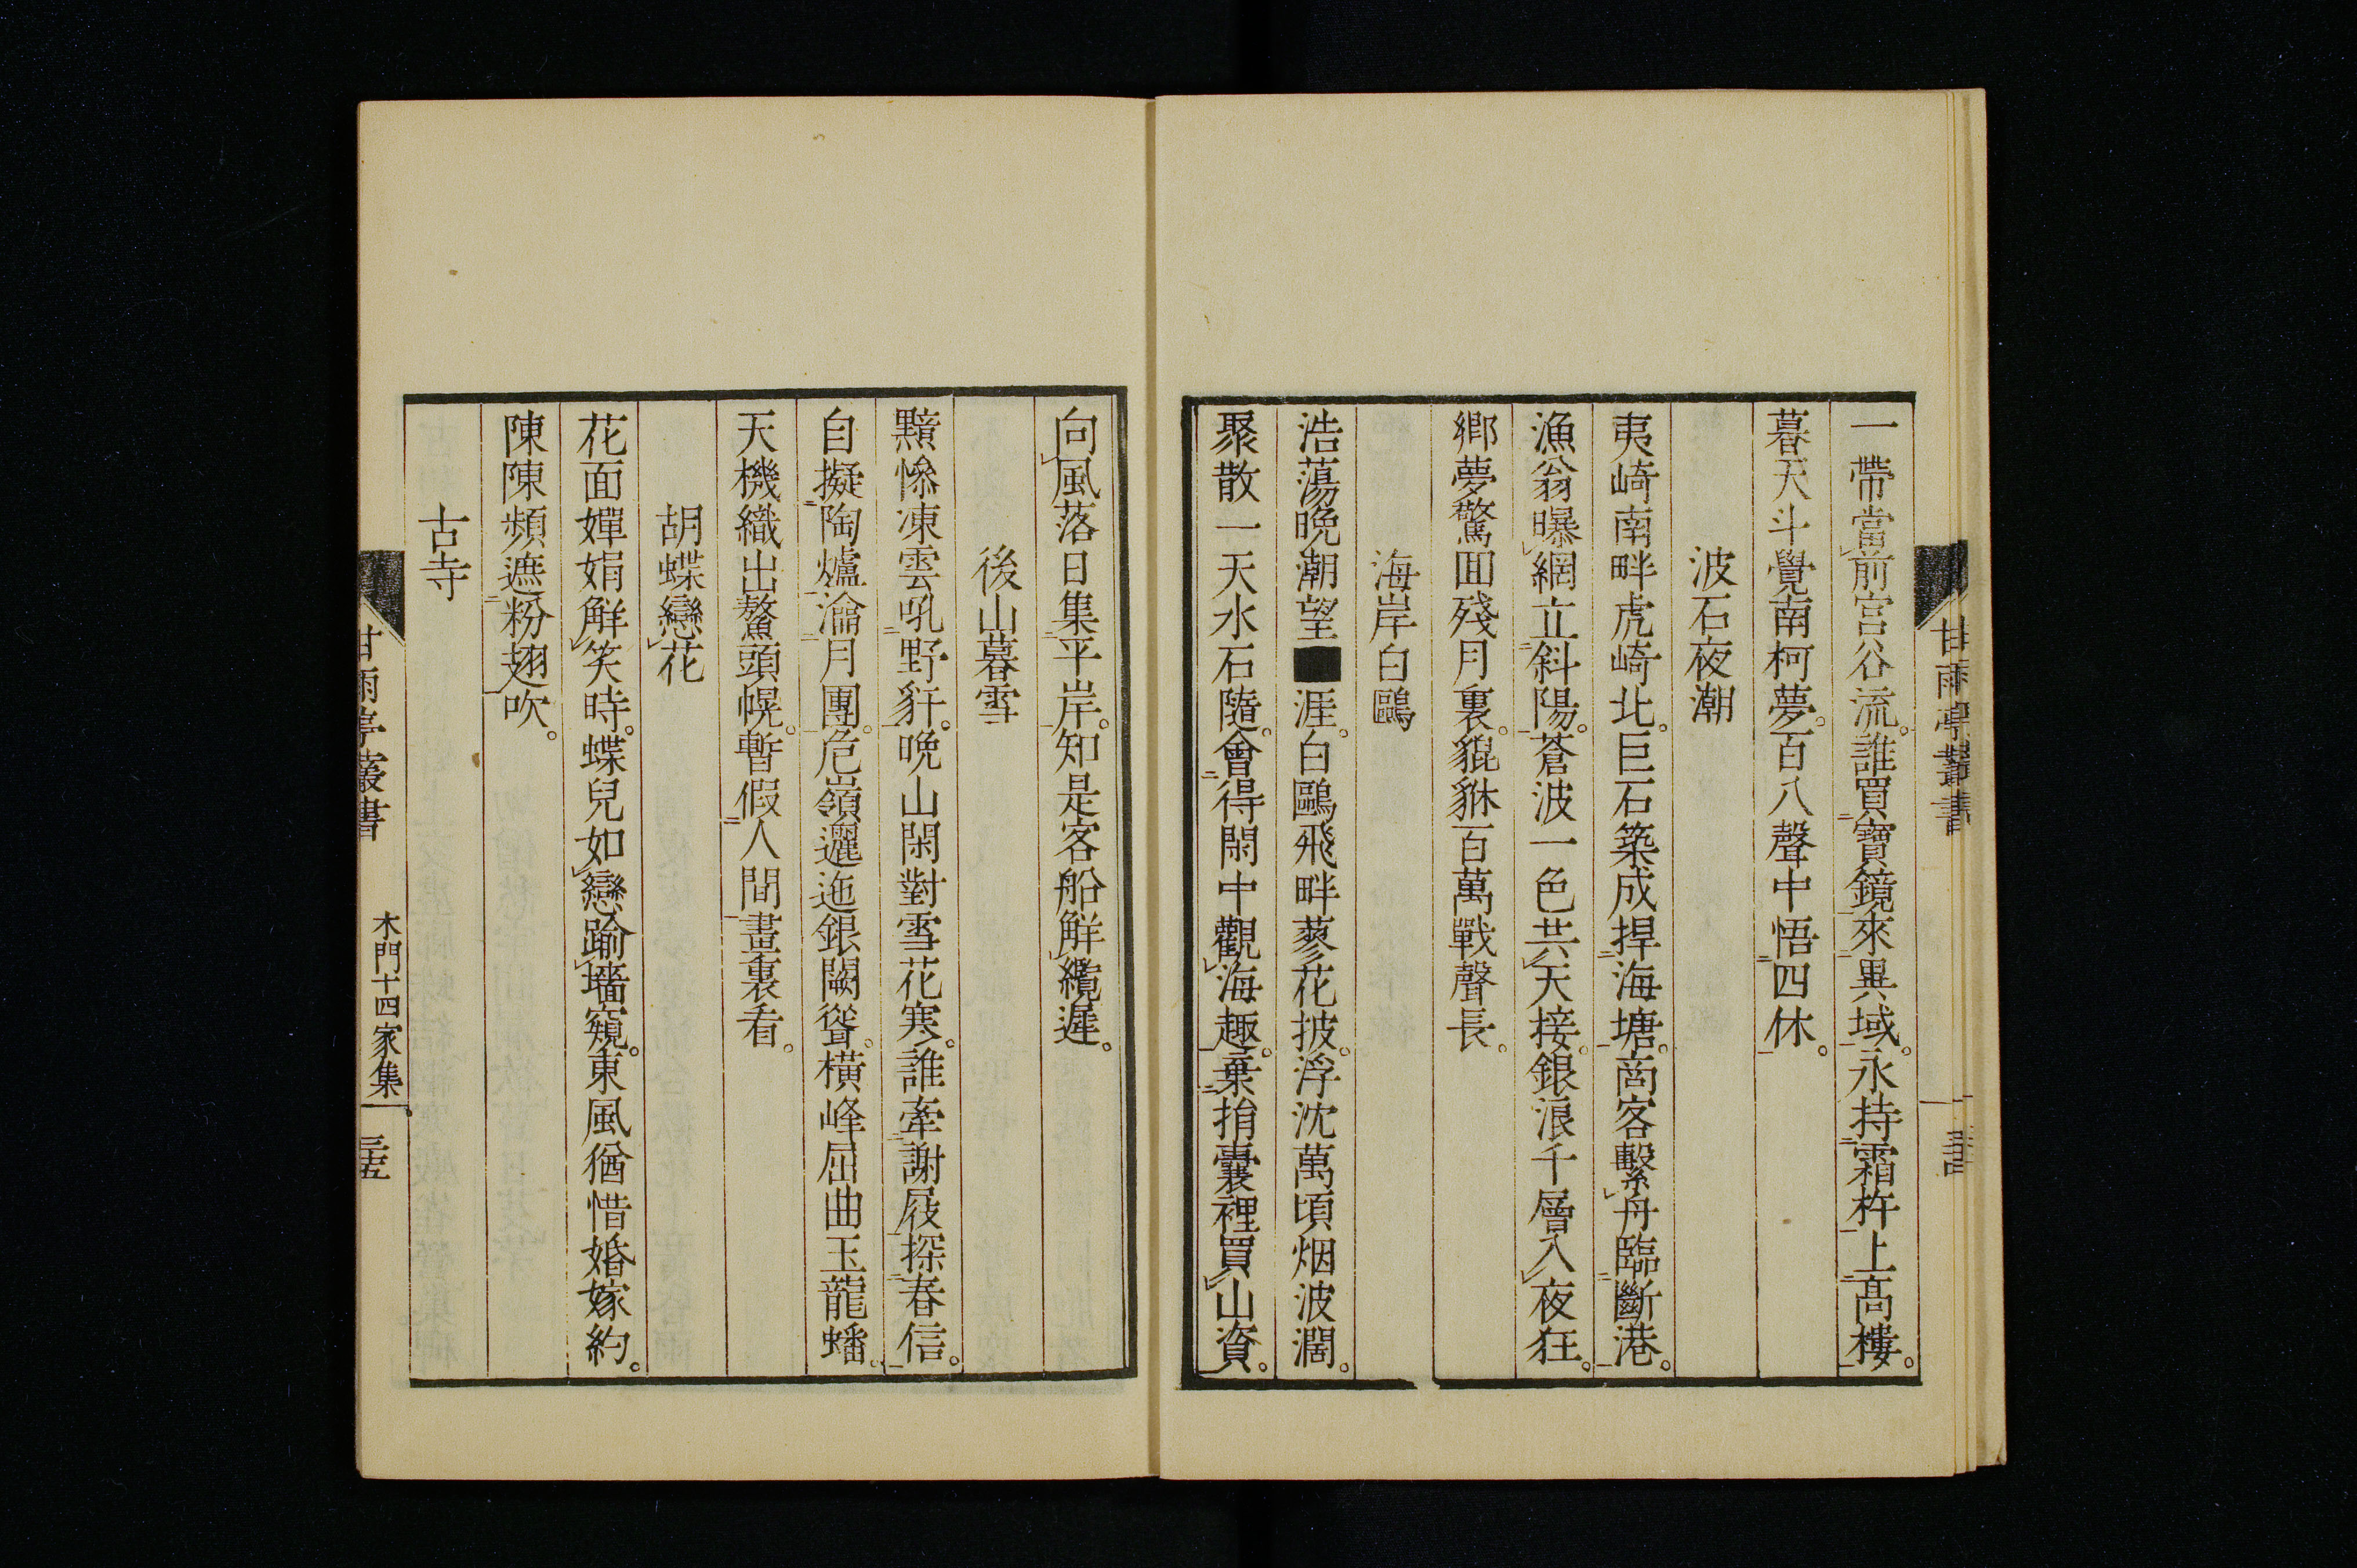 一帶當前宮谷流。誰買寶鏡來異域。永持霜杵上高樓。
暮天斗覺南柯夢。百八聲中悟四休。
波石夜潮
夷崎南畔虎崎北。巨石築成捍海塘。商客繫舟臨斷港。
漁翁曝網立斜陽。蒼波一色共天接。銀浪千層入夜狂。
鄉夢驚回殘月裏。貔貅百萬戰聲長。
海岸白鷗
浩蕩晩潮望■涯。白鷗飛畔蓼花披。浮沈萬頃烟波濶。
聚散一天水石隨。會得閑中觀海趣。棄捐囊裡買山資。
甘雨亭叢書
向風落日集平岸。知是客船觧纜遲。
後山暮雪
黯慘凍雲吼野豻。晩山閑對雪花寒。誰牽謝屐探春信。
自擬陶爐瀹月團。危嶺邐迤銀闕聳。橫峰屈曲玉龍蟠。
天機織出鰲頭幌。暫假人間畫裏看。
胡蝶戀花
花面嬋娟觧笑時。蝶兒如戀踰墻窺。東風猶惜婚嫁約。
陳陳頻遮粉翅吹。
古寺
甘雨亭叢書
木門十四家集
三五